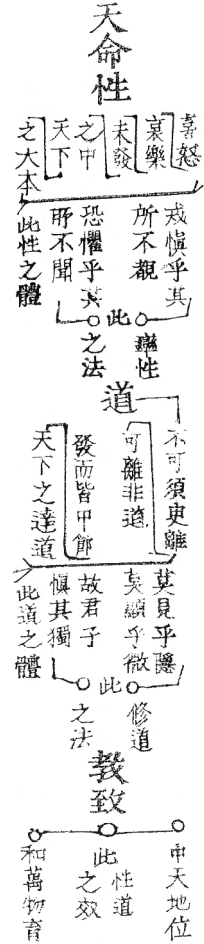 天命性
喜怒
哀樂
未發
之中
天下
之大本
戒慎乎其
所不覩
恐懼乎其
所不聞
此性之體
此
率性
之法
道
不可須臾離
可離非道
發而皆中節
天下之達道
莫見乎隱
莫顯乎微
故君子
慎其獨
此道之體
此
修道
之法
教
致
中天地位
此性道
之效
和萬物育